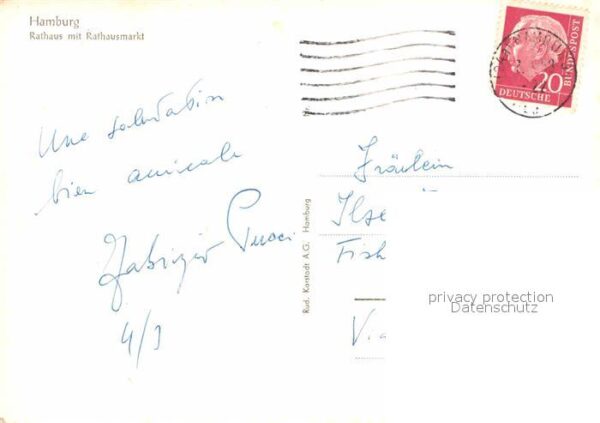 Hamburg
Rathaus mit Rathausmarkt
Une salutation
bien amicale
Fabrizio
4/3
Rud. Karstadt A.G. Hamburg
20
DEUTSCHE
BUNDESPOST
Fräulein
Ilse
Fish
privacy protection
Datenschutz